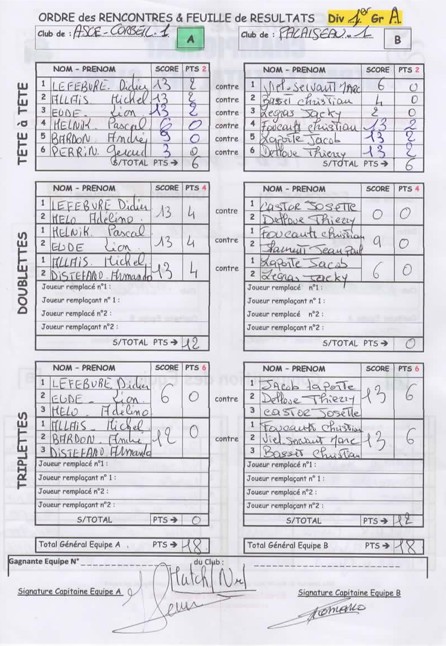 ORDRE des RENCONTRES & FEUILLE de RESULTATS Div 1er Gr A
Club de : ASCE-CORBEIL-1 A Club de : PALAISEAU-1 B
TETE à TETE
NOM - PRENOM SCORE PTS 2 NOM - PRENOM SCORE PTS 2
1 LEFEBURE Didier 13 2 contre 1 Viel-servant Marc 6 0
2 ALLAIS Michel 13 2 contre 2 Basset Christian 4 0
3 EUDE Lion 13 2 contre 3 Legras Jacky 2 0
4 HELNIK Pascal 6 0 contre 4 Foucault christian 13 2
5 BARDON André 0 contre 5 Laporte Jacob 13 2
6 PERRIN Geraud 3 0 contre 6 Delfove Thierry 13 2
S/TOTAL PTS → 6 S/TOTAL PTS → 6
DOUBLETTES
NOM - PRENOM SCORE PTS 4 NOM - PRENOM SCORE PTS 4
1 LEFEBURE Didier 13 4 contre 1 Castor Josette 0 0
2 MELO Adelino 2 Delfove Thierry
1 HELNIK Pascal 13 4 contre 1 Foucault christian 9 0
2 EUDE Lion 2 Jean Paul
1 ALLAIS Michel 13 4 contre 1 Laporte Jacob 6 0
2 DISTEFANO Armando 2 Legras Jacky
Joueur remplacé n°1 : Joueur remplacé n°1 :
Joueur remplaçant n° 1 : Joueur remplaçant n° 1 :
Joueur remplacé n°2 : Joueur remplacé n°2 :
Joueur remplaçant n°2 : Joueur remplaçant n°2 :
S/TOTAL PTS → 12 S/TOTAL PTS → 0
TRIPLETTES
NOM - PRENOM SCORE PTS 6 NOM - PRENOM SCORE PTS 6
1 LEFEBURE Didier 1 Jacob Laporte
2 EUDE - Lion 6 0 contre 2 Delfove Thierry 13 6
3 MELO Adelino 3 CASTOR Josette
1 ALLAIS Michel 1 Foucault christian
2 BARDON André 12 0 contre 2 Viel servant Marc 13 6
3 DISTEFANO Armando 3 Basset Christian
Joueur remplacé n°1 : Joueur remplacé n°1 :
Joueur remplaçant n° 1 : Joueur remplaçant n° 1 :
Joueur remplacé n°2 : Joueur remplacé n°2 :
Joueur remplaçant n°2 : Joueur remplaçant n°2 :
S/TOTAL PTS → 0 S/TOTAL PTS → 12
Total Général Equipe A PTS → 18 Total Général Equipe B PTS → 18
Gagnante Equipe N° du Club :
Match Nul
Signature Capitaine Equipe A Signature Capitaine Equipe B